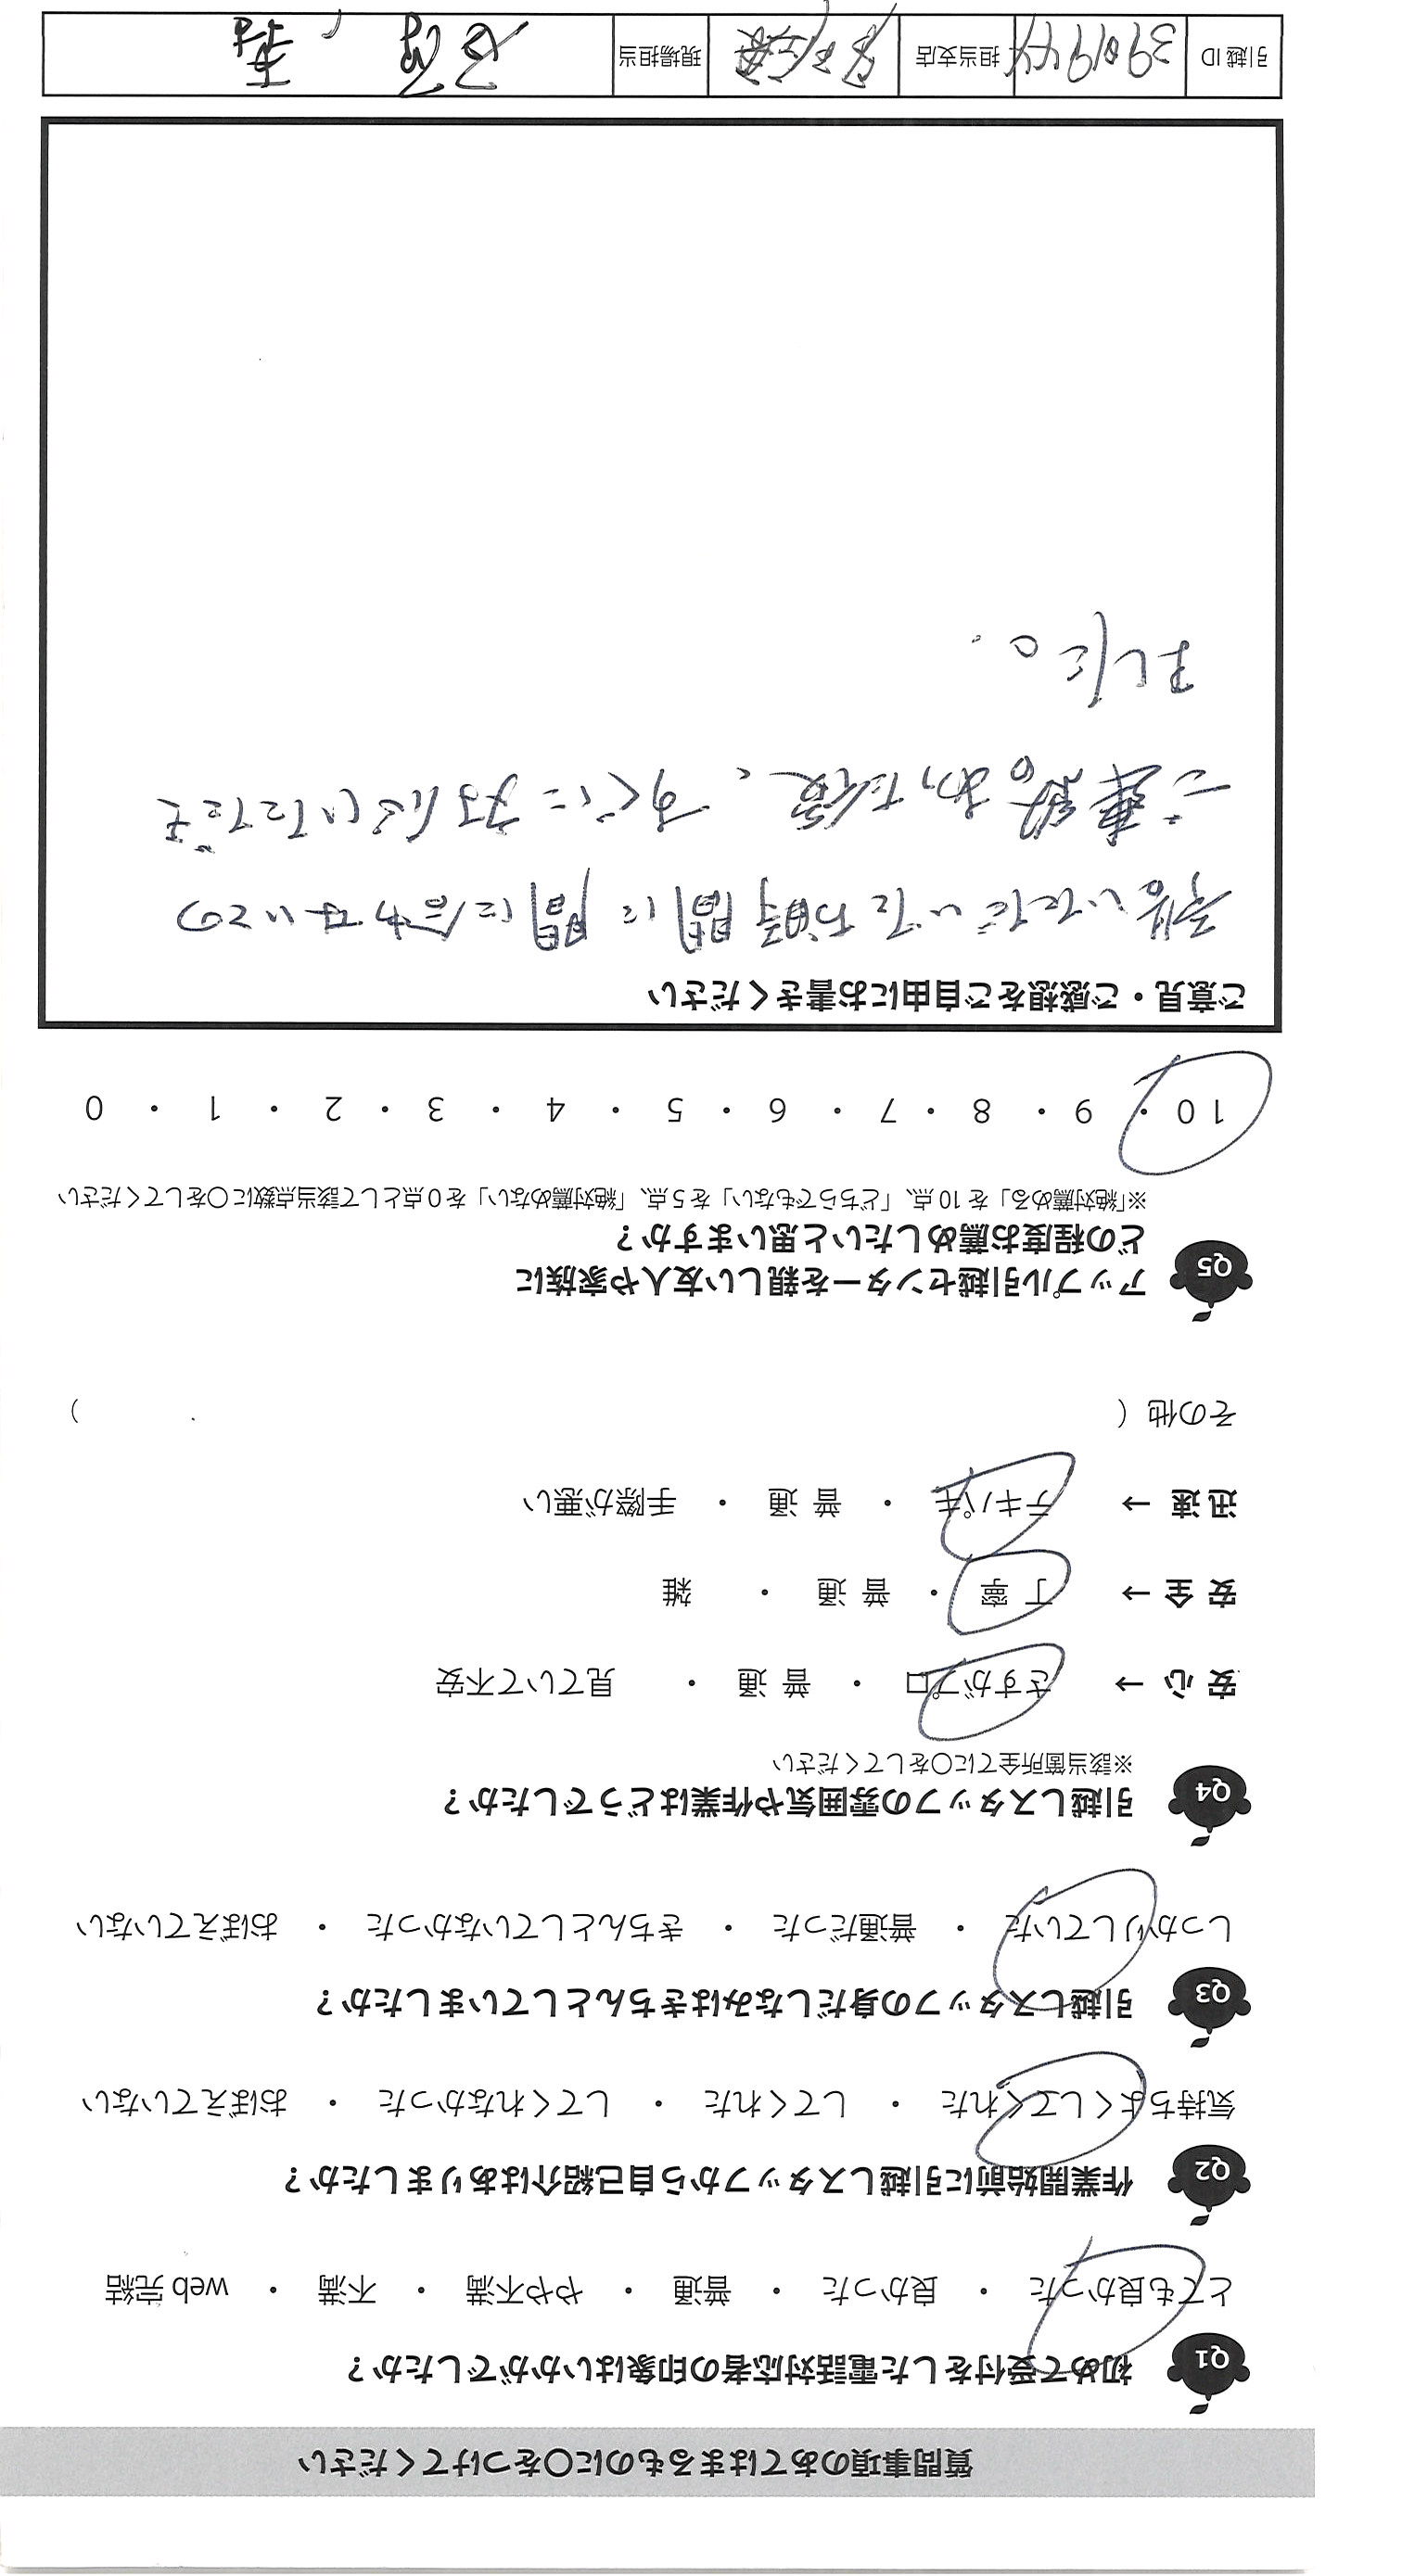 質問事項のあてはまるものに○をつけてください
Q1 初めて受付をした電話対応者の印象はいかがでしたか？
とても良かった ・ 良かった ・ 普通 ・ やや不満 ・ 不満 ・ web 完結
Q2 作業開始前に引越しスタッフから自己紹介はありましたか？
気持ちよくしてくれた ・ してくれた ・ してくれなかった ・ おぼえていない
Q3 引越しスタッフの身だしなみはきちんとしていましたか？
しっかりしていた ・ 普通だった ・ きちんとしていなかった ・ おぼえていない
Q4 引越しスタッフの雰囲気や作業はどうでしたか？
※該当箇所全てに○をしてください
安 心 → さすがプロ ・ 普 通 ・ 見ていて不安
安 全 → 丁 寧 ・ 普 通 ・ 雑
迅 速 → テキパキ ・ 普 通 ・ 手際が悪い
その他（ ）
Q5 アップル引越センターを親しい友人や家族に
どの程度お薦めしたいと思いますか？
※「絶対薦める」を 10 点、「どちらでもない」を 5 点、「絶対薦めない」を 0 点として該当点数に○をしてください
10 ・ 9 ・ 8 ・ 7 ・ 6 ・ 5 ・ 4 ・ 3 ・ 2 ・ 1 ・ 0
ご意見・ご感想をご自由にお書きください
いただいたお時間に間に合わないとの
ご連絡あった後、すぐに対応いただき
ました。
引越 ID 担当支店 現場担当